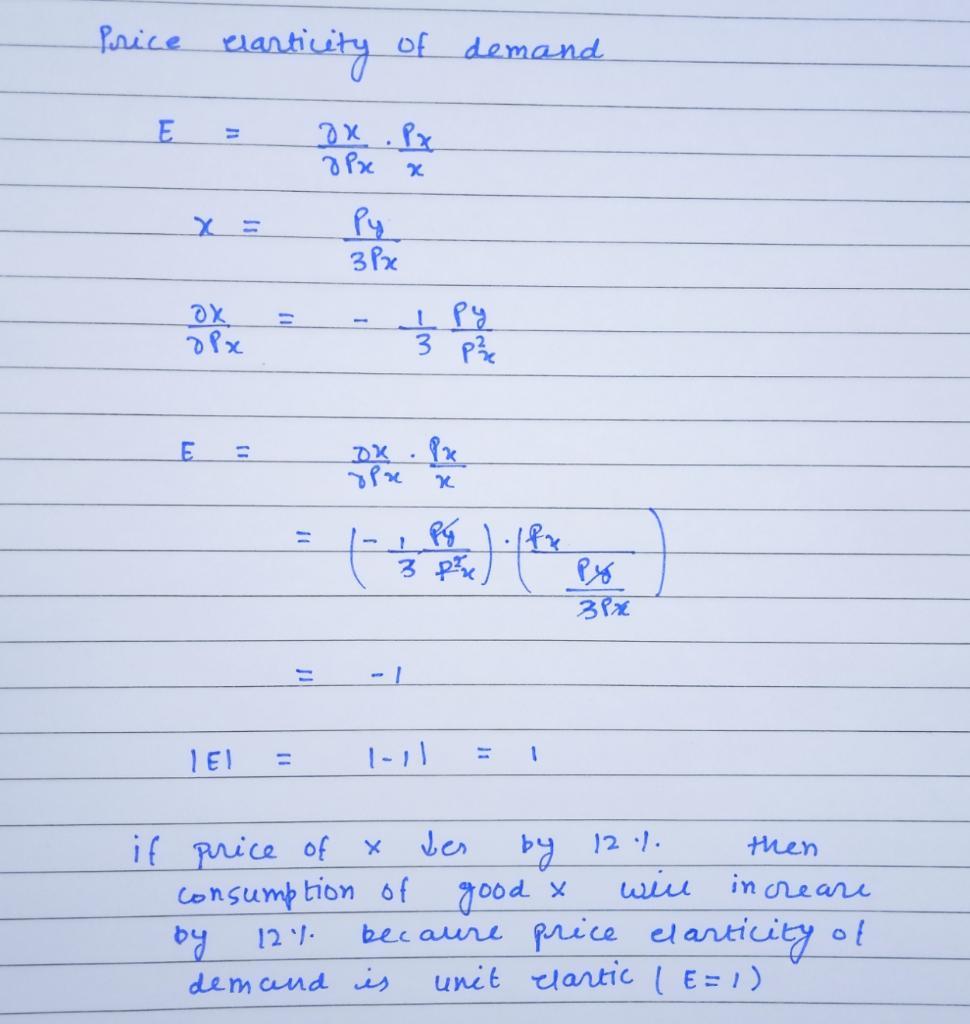 Price elasticity of demand
E = ∂x/∂Px . Px/x
x = Py/3Px
∂x/∂Px = - 1/3 Py/P²x
E = ∂x/∂Px . Px/x
= (- 1/3 Py/P²x) . (Px/(Py/3Px))
= -1
|E| = |-1| = 1
if price of x ↓es by 12 %. then
consumption of good x will increase
by 12 %. because price elasticity of
demand is unit elastic (E=1)